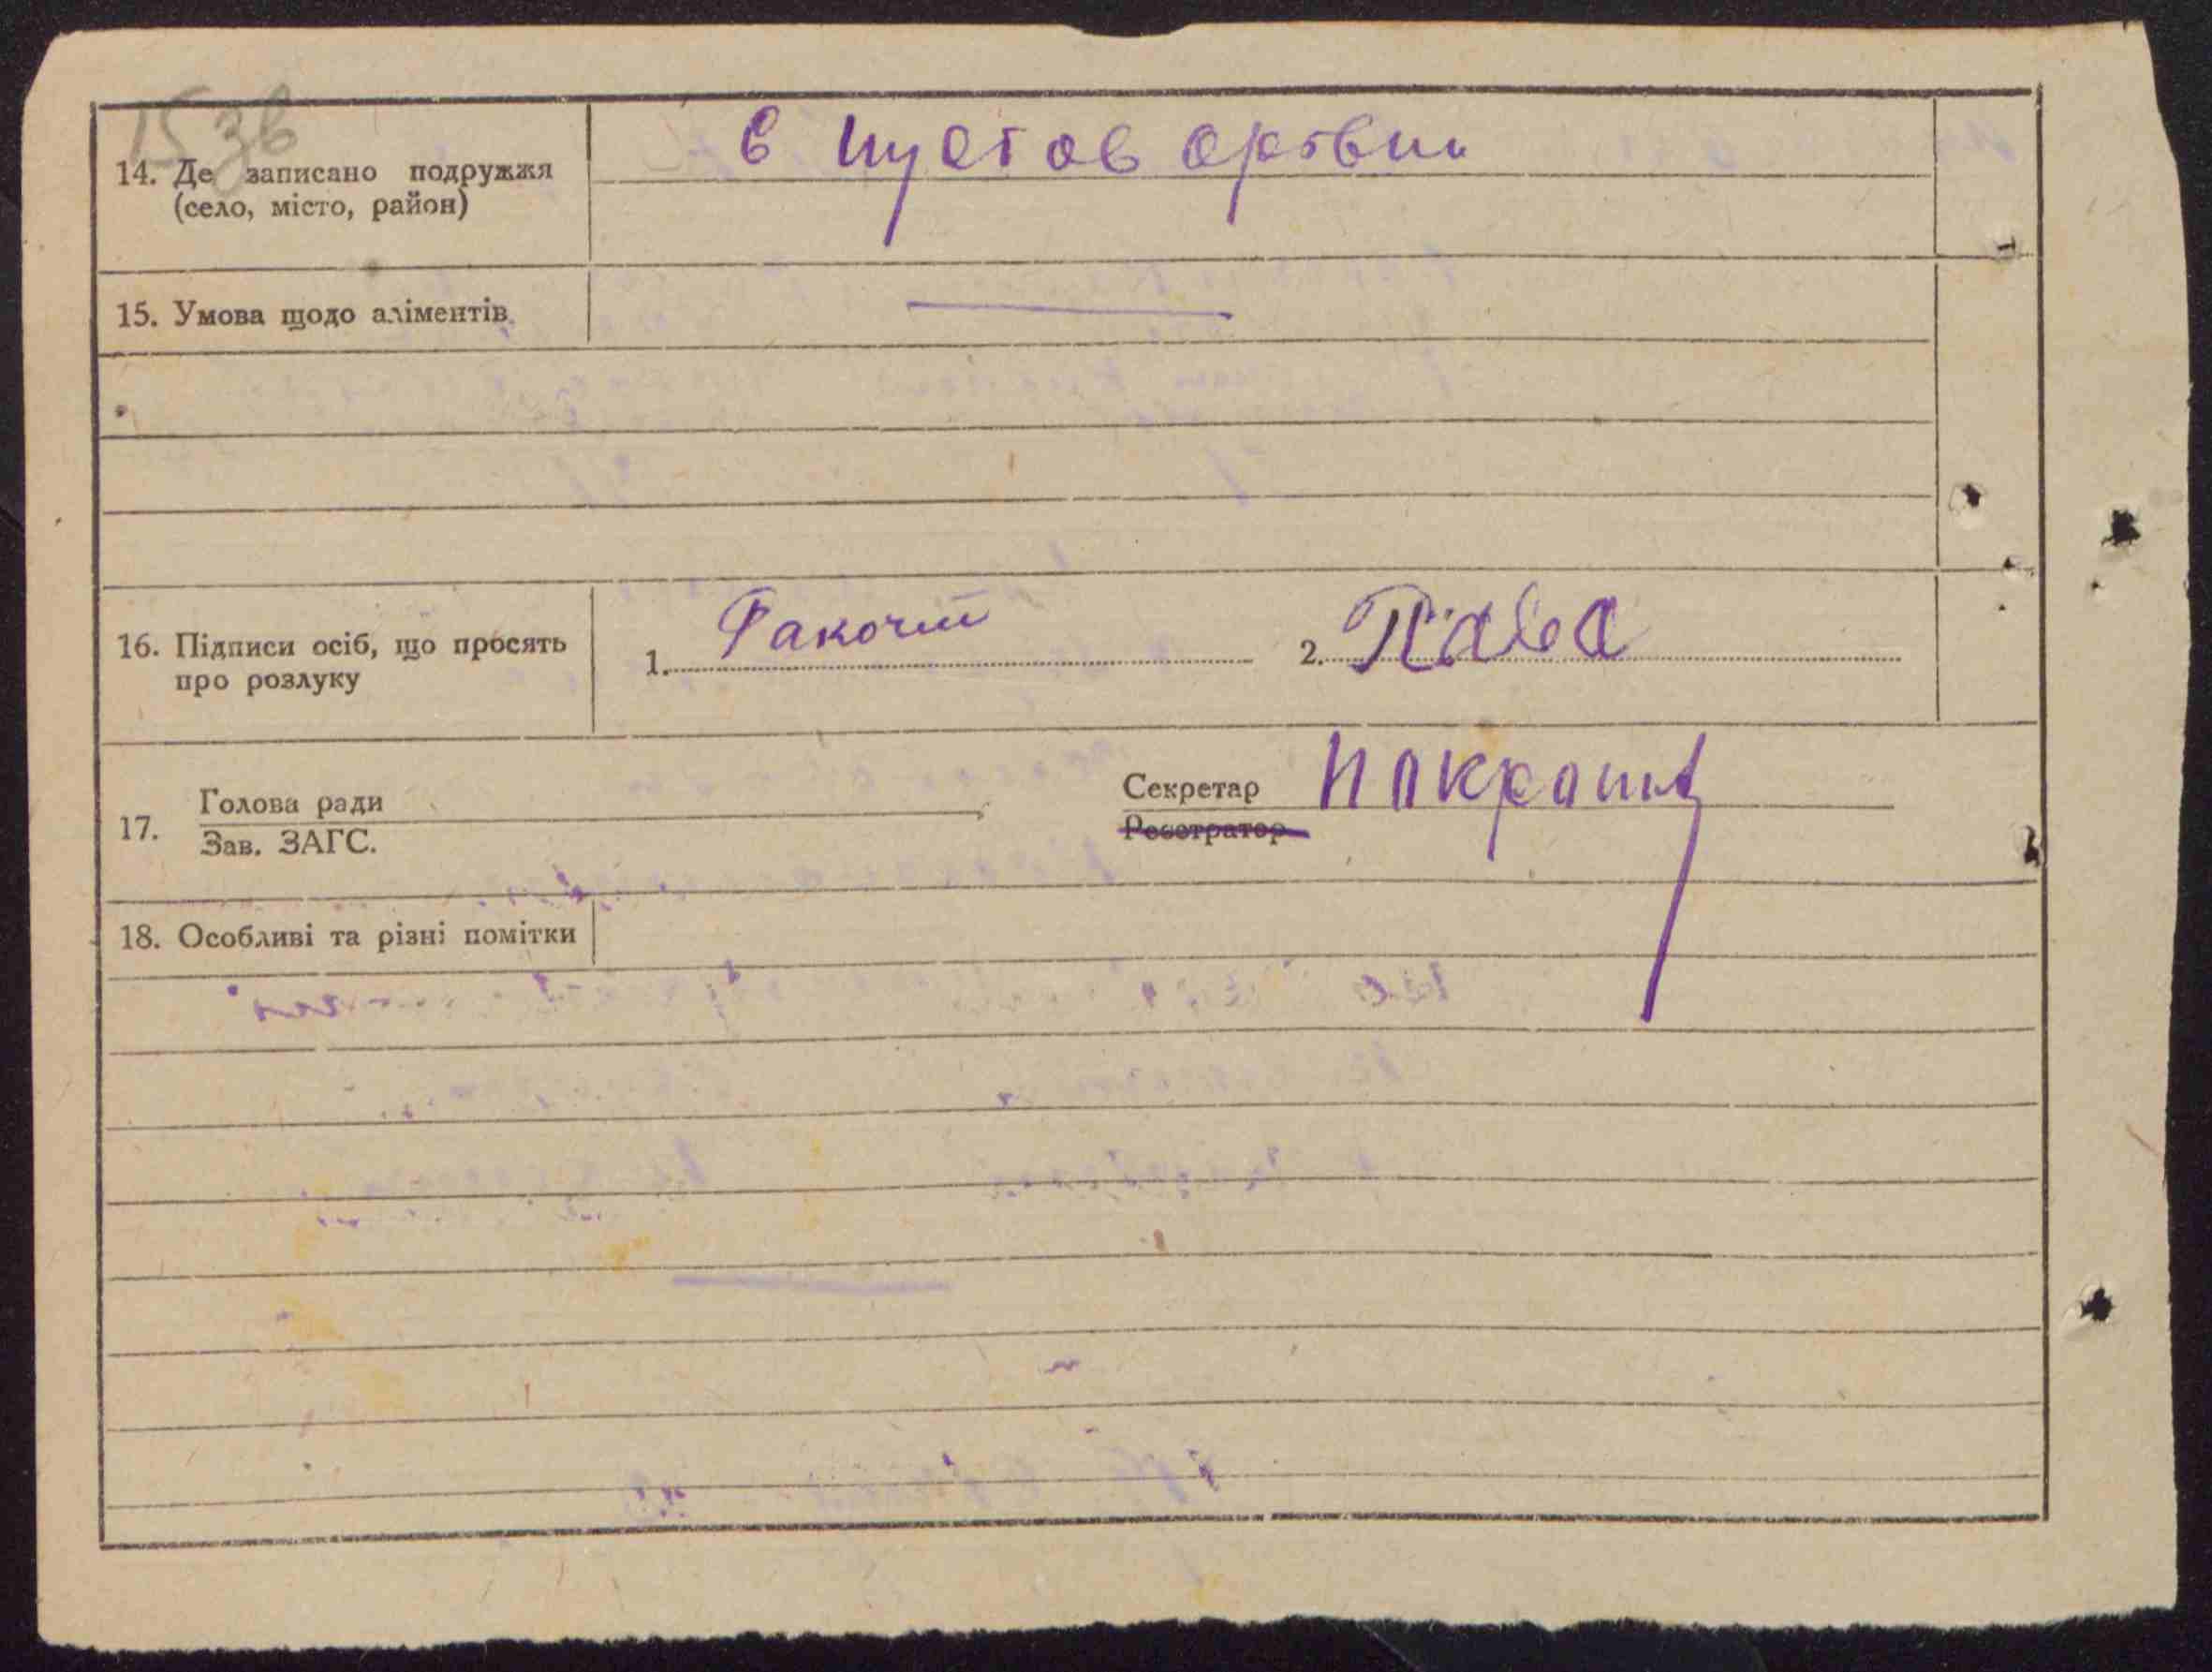 15 зв
14. Де записано подружжя
(село, місто, район)
в
15. Умова щодо аліментів
16. Підписи осіб, що просять
про розлуку
1. Факочий 2. Пава
17. Голова ради
Зав. ЗАГС.
Секретар
Реєстратор
18. Особливі та різні помітки